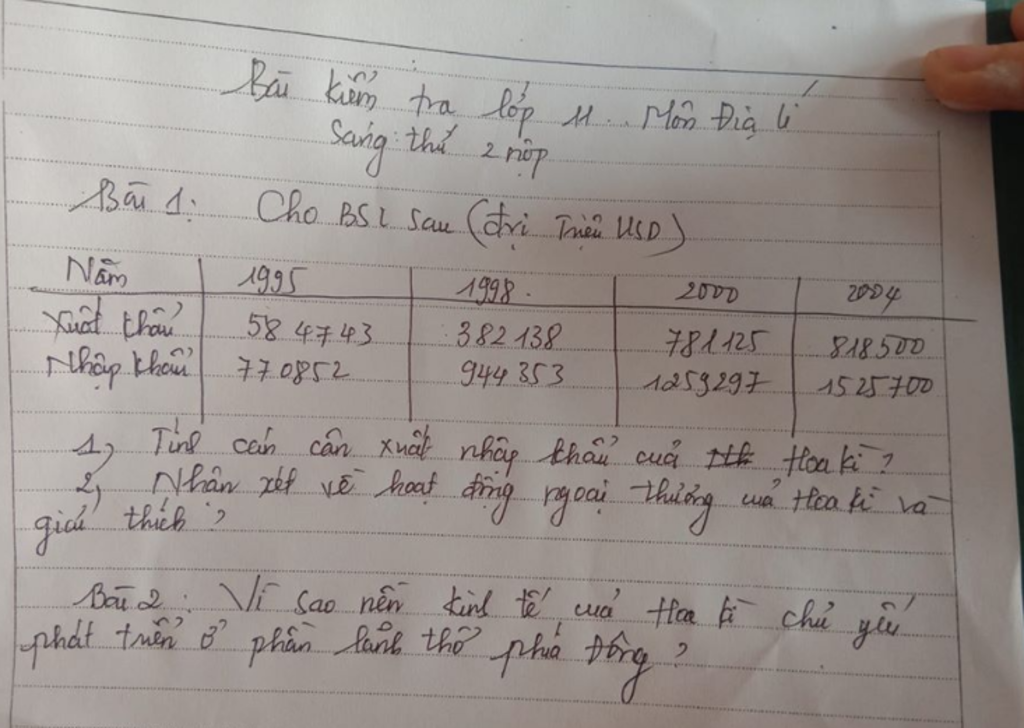 Bài kiểm tra lớp 11. Môn Địa lí
Sáng thứ 2 nộp
Bài 1: Cho BSL sau (đvị Triệu USD)
Năm 1995 1998. 2000 2004
Xuất khẩu 584743 382138 781125 818500
Nhập khẩu 770852 944353 1259297 1525700
1, Tính cán cân xuất nhập khẩu của Hoa kì?
2, Nhận xét về hoạt động ngoại thương của Hoa kì và
giải thích?
Bài 2: Vì sao nền kinh tế của Hoa kì chủ yếu
phát triển ở phần lãnh thổ phía Đông?